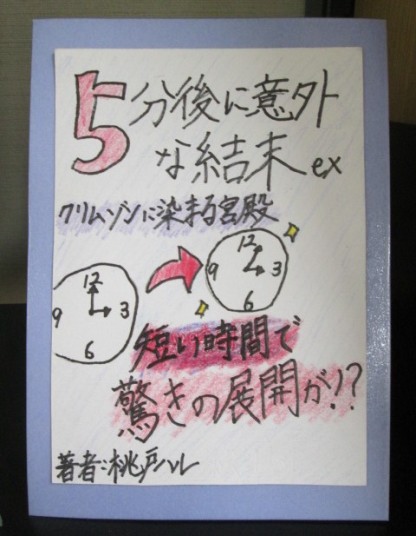 5分後に意外
な結末 ex
クリムゾンに染まる宮殿
12
9 3
6
12
9 3
6
短い時間で
驚きの展開が!?
著者:桃戸ハル